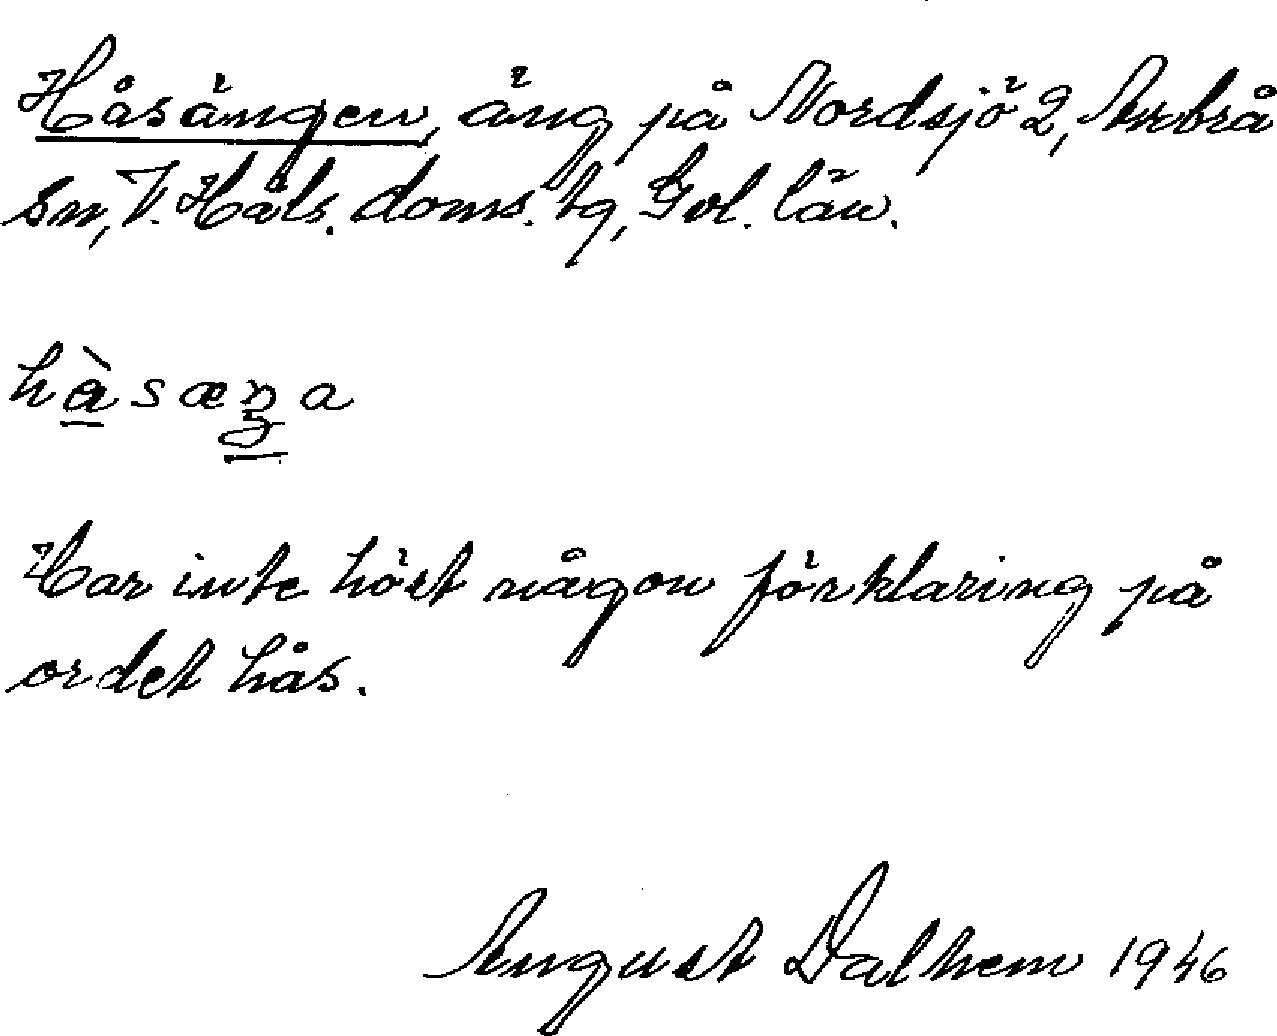 Håsängen, äng på Nordsjö 2, Arbrå
sn, V. Häls. doms. tg, Gvl. län.
Har inte hört någon förklaring på
ordet hås.
August Dalhem 1946